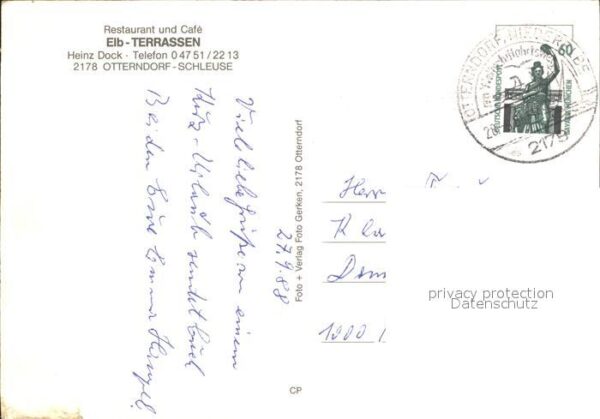 Restaurant und Café
Elb-TERRASSEN
Heinz Dock · Telefon 0 47 51 / 22 13
2178 OTTERNDORF-SCHLEUSE
27.9.88
Viele liebe Grüße von einem
Kurz-Urlaub sendet Euch
Beiden Eure
Foto + Verlag Foto Gerken, 2178 Otterndorf
CP
60
DEUTSCHE BUNDESPOST
BAVARIA MÜNCHEN
OTTERNDORF, NIEDERELBE
2178
Herrn
1000
privacy protection
Datenschutz